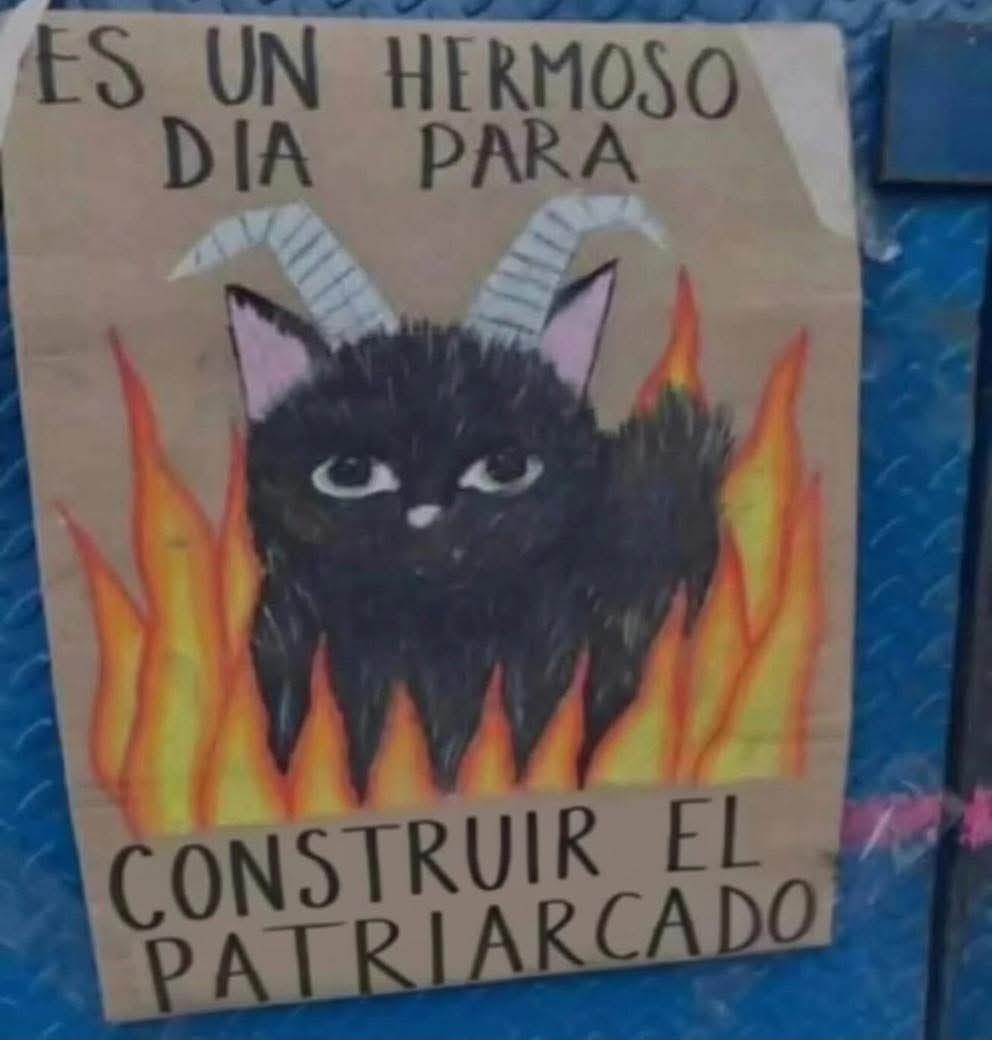 ES UN HERMOSO
DIA PARA
CONSTRUIR EL
PATRIARCADO